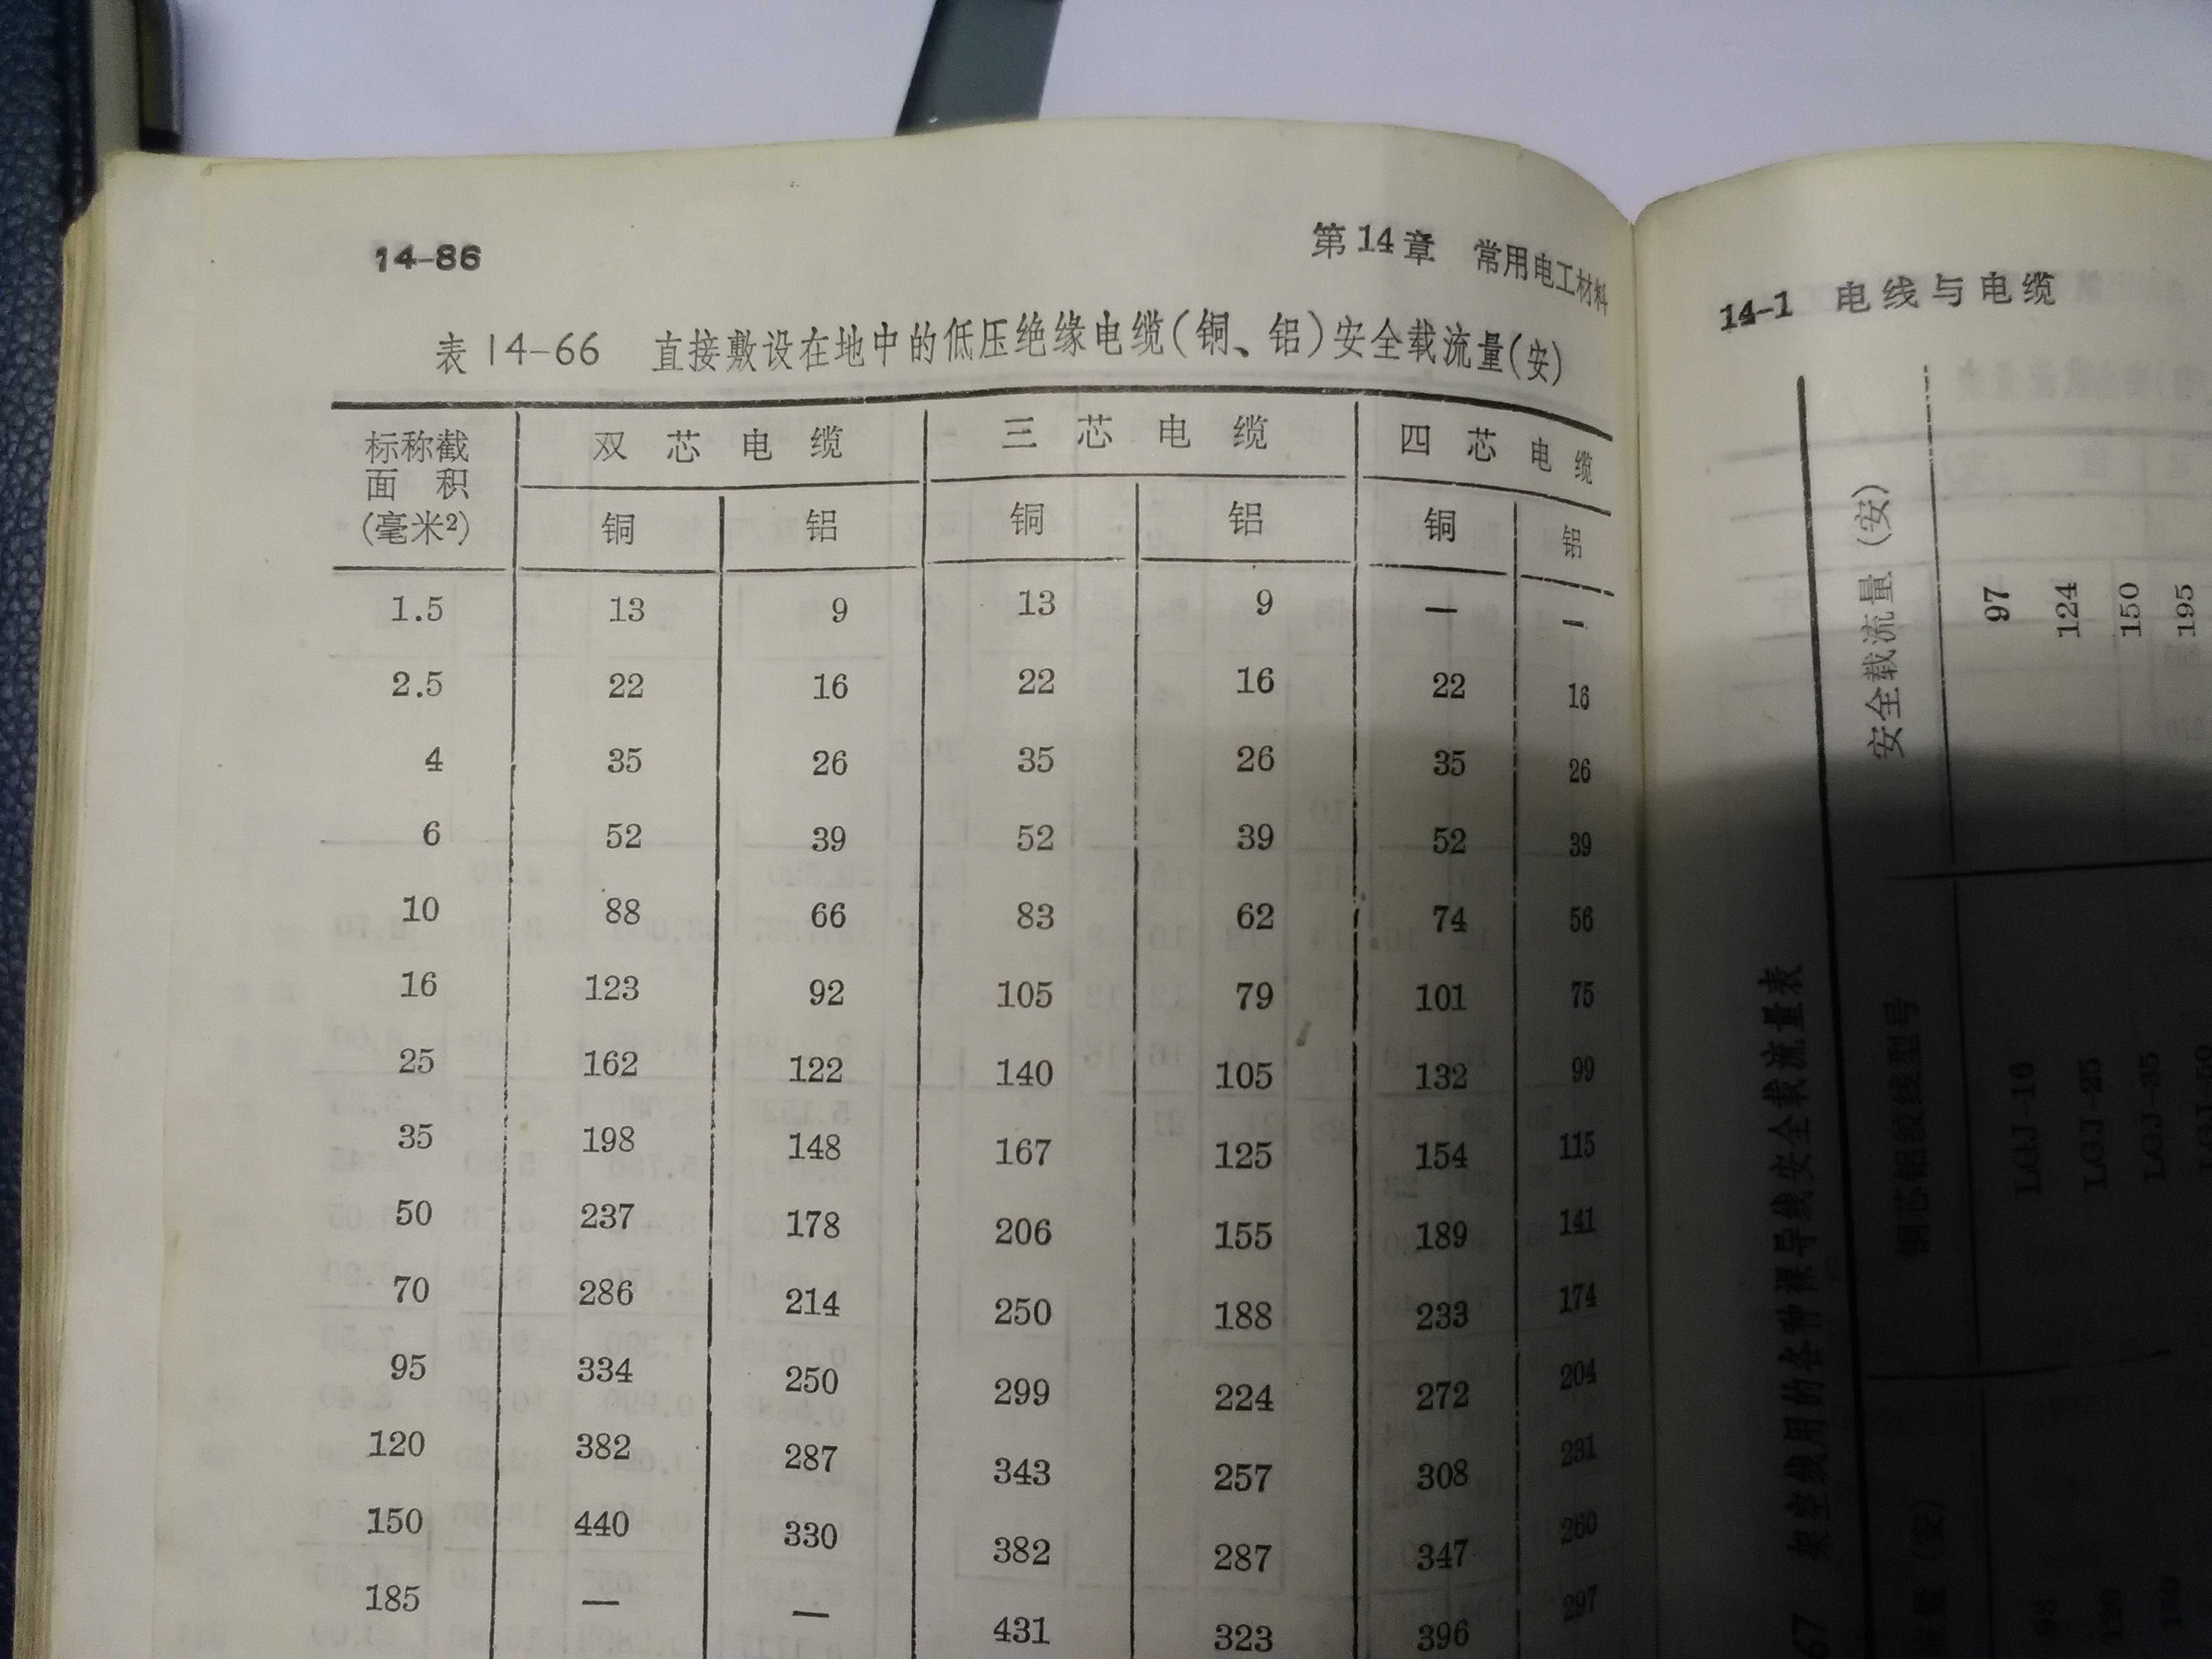 14-86 第14章 常用电工材料
表14-66 直接敷设在地中的低压绝缘电缆(铜、铝)安全载流量(安)
标称截面积(毫米²) 双芯电缆 三芯电缆 四芯电缆
铜 铝 铜 铝 铜 铝
1.5 13 9 13 9 — —
2.5 22 16 22 16 22 16
4 35 26 35 26 35 26
6 52 39 52 39 52 39
10 88 66 83 62 74 56
16 123 92 105 79 101 75
25 162 122 140 105 132 99
35 198 148 167 125 154 115
50 237 178 206 155 189 141
70 286 214 250 188 233 174
95 334 250 299 224 272 204
120 382 287 343 257 308 231
150 440 330 382 287 347 260
185 — — 431 323 396 297
14-1 电线与电缆
67 架空线用的各种裸导线安全载流量表
钢芯铝绞线型号 安全载流量(安)
LGJ-16 97
LGJ-25 124
LGJ-35 150
LGJ-50 195